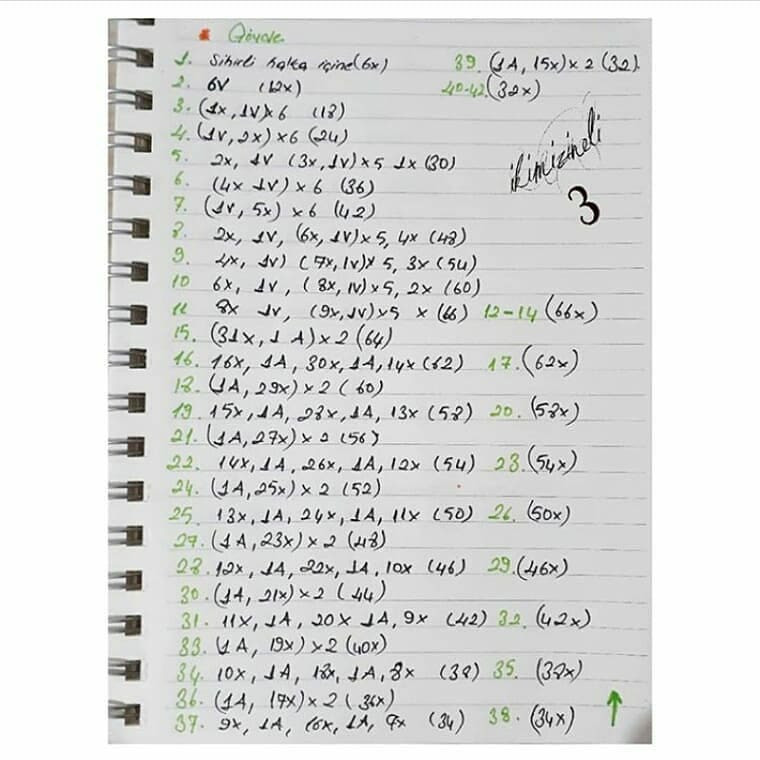 Gövde
1. Sihirli halka içine (6x) 39. (1A, 15x) x 2 (32)
2. 6V (12x) 40-42 (32x)
3. (1x, 1V) x 6 (18)
4. (1V, 2x) x 6 (24)
5. 2x, 1V (3x, 1V) x 5 1x (30)
6. (4x 1V) x 6 (36)
7. (1V, 5x) x 6 (42)
8. 2x, 1V, (6x, 1V) x 5, 4x (48)
9. 4x, 1V) (7x, 1V) x 5, 3x (54)
10 6x, 1V, (8x, 1V) x 5, 2x (60)
11 8x 1V, (9x, 1V) x 5 x (66) 12-14 (66x)
15. (31x, 1A) x 2 (64)
16. 16x, 1A, 30x, 1A, 14x (62) 17. (62x)
18. (1A, 29x) x 2 (60)
19. 15x, 1A, 28x, 1A, 13x (58) 20. (58x)
21. (1A, 27x) x 2 (56)
22. 14x, 1A, 26x, 1A, 12x (54) 23. (54x)
24. (1A, 25x) x 2 (52)
25. 13x, 1A, 24x, 1A, 11x (50) 26. (50x)
27. (1A, 23x) x 2 (48)
28. 12x, 1A, 22x, 1A, 10x (46) 29. (46x)
30. (1A, 21x) x 2 (44)
31. 11x, 1A, 20x 1A, 9x (42) 32. (42x)
33. (1A, 19x) x 2 (40x)
34. 10x, 1A, 18x, 1A, 8x (38) 35. (38x)
36. (1A, 17x) x 2 (36x)
37. 9x, 1A, 16x, 1A, 7x (34) 38. (34x)
ikimizineli
3